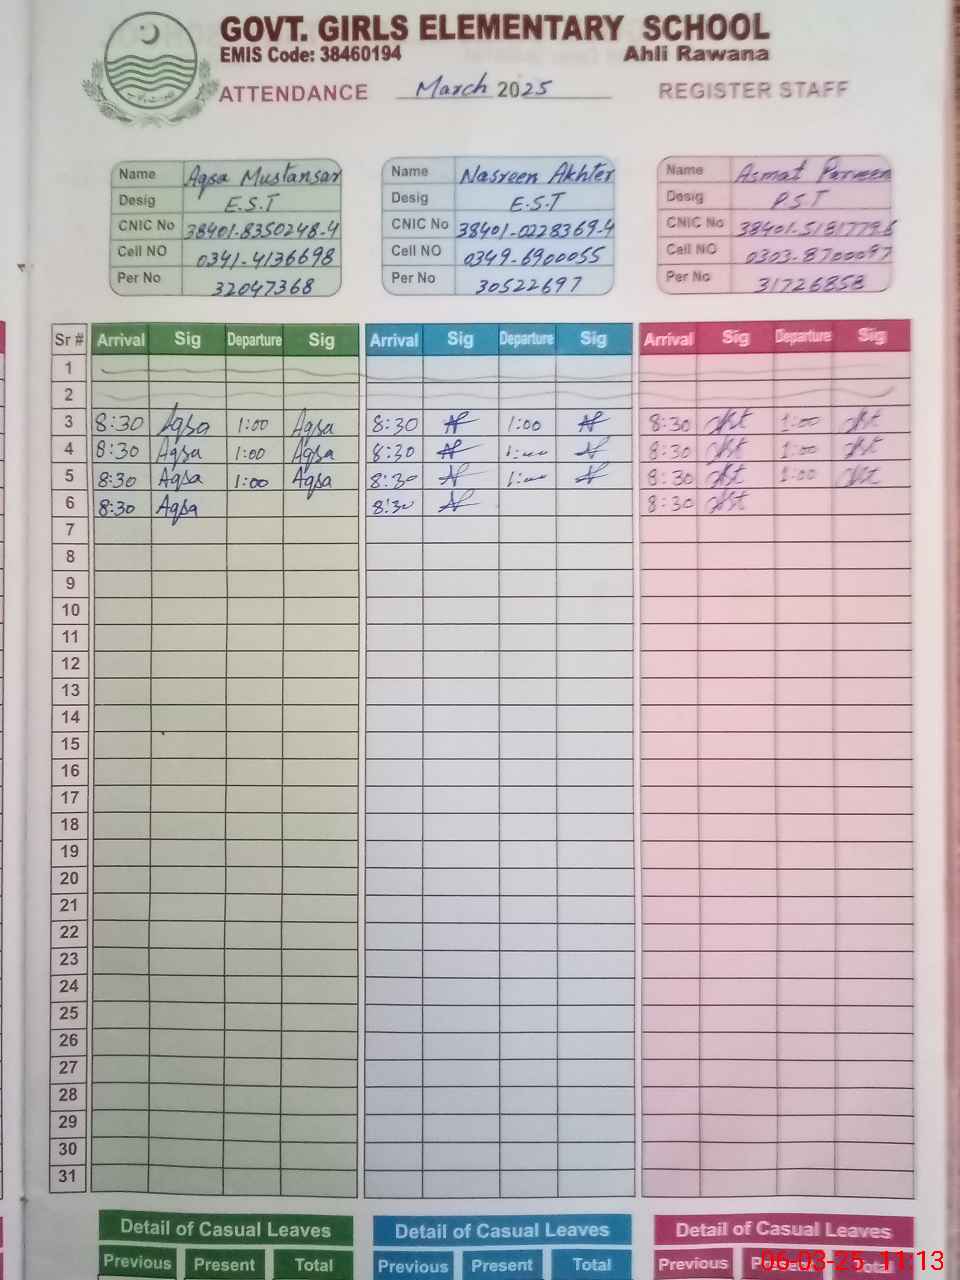 GOVT. GIRLS ELEMENTARY SCHOOL
EMIS Code: 38460194 Ahli Rawana
ATTENDANCE March 2025 REGISTER STAFF
Name Aqsa Mustansar
Desig E.S.T
CNIC No 38401-8350248-4
Cell NO 0341-4136698
Per No 32047368
Name Nasreen Akhter
Desig E.S.T
CNIC No 38401-0228369-4
Cell NO 0349-6900055
Per No 30522697
Name Asmat Parveen
Desig P.S.T
CNIC No 38401-5181779-6
Cell NO 0303-8700097
Per No 31726858
Sr # Arrival Sig Departure Sig Arrival Sig Departure Sig Arrival Sig Departure Sig
1
2
3 8:30 Aqsa 1:00 Aqsa 8:30 1:00 8:30 1:00
4 8:30 Aqsa 1:00 Aqsa 8:30 1:00 8:30 1:00
5 8:30 Aqsa 1:00 Aqsa 8:30 1:00 8:30 1:00
6 8:30 Aqsa 8:30 8:30
7
8
9
10
11
12
13
14
15
16
17
18
19
20
21
22
23
24
25
26
27
28
29
30
31
Detail of Casual Leaves Detail of Casual Leaves Detail of Casual Leaves
Previous Present Total Previous Present Total Previous Present Total
06-03-25 11:13